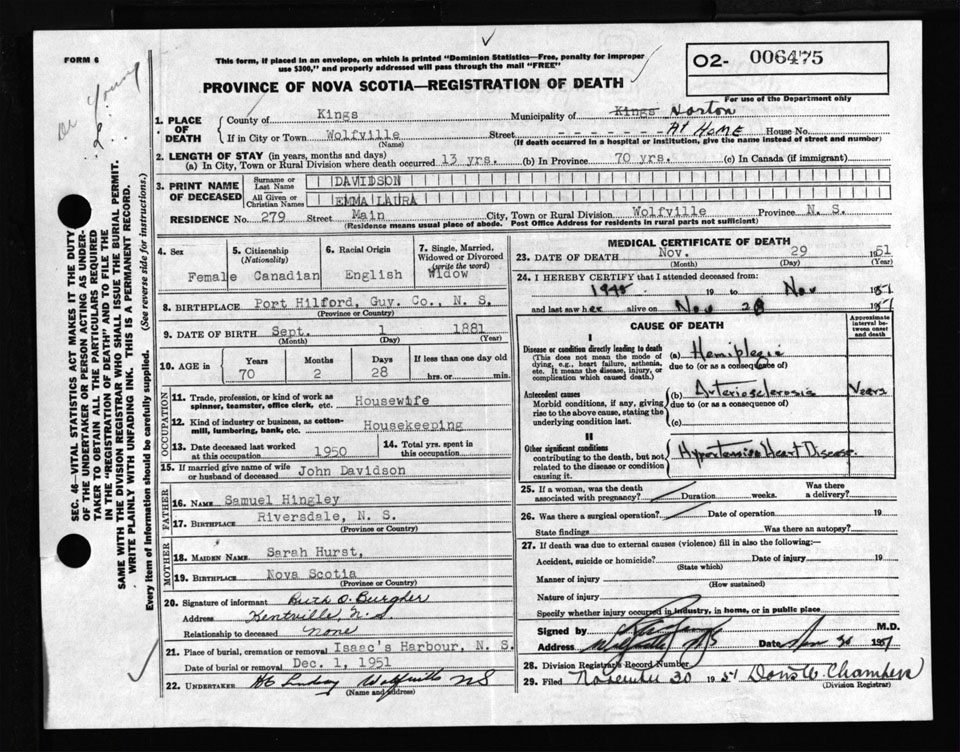 FORM 6
This form, if placed in an envelope, on which is printed "Dominion Statistics—Free, penalty for improper
use $300," and properly addressed will pass through the mail "FREE"
O2- 006475
PROVINCE OF NOVA SCOTIA—REGISTRATION OF DEATH
For use of the Department only
1. PLACE OF DEATH
County of Kings Municipality of Kings Horton
If in City or Town Wolfville Street - - - - - - At Home House No.
(Name) (If death occurred in a hospital or institution, give the name instead of street and number)
2. LENGTH OF STAY (in years, months and days)
(a) In City, Town or Rural Division where death occurred 13 yrs. (b) In Province 70 yrs. (c) In Canada (if immigrant)
3. PRINT NAME OF DECEASED
Surname or Last Name DAVIDSON
All Given or Christian Names EMMA LAURA
RESIDENCE No. 279 Street Main City, Town or Rural Division Wolfville Province N. S.
(Residence means usual place of abode. Post Office Address for residents in rural parts not sufficient)
4. Sex Female
5. Citizenship (Nationality) Canadian
6. Racial Origin English
7. Single, Married, Widowed or Divorced (write the word) Widow
8. BIRTHPLACE Port Hilford, Guy. Co., N. S.
(Province or Country)
9. DATE OF BIRTH Sept. 1 1881
(Month) (Day) (Year)
10. AGE in Years Months Days If less than one day old
70 2 28 hrs. or min.
OCCUPATION
11. Trade, profession, or kind of work as spinner, teamster, office clerk, etc. Housewife
12. Kind of industry or business, as cotton-mill, lumbering, bank, etc. Housekeeping
13. Date deceased last worked at this occupation 1950
14. Total yrs. spent in this occupation
15. If married give name of wife or husband of deceased John Davidson
FATHER
16. NAME Samuel Hingley
17. BIRTHPLACE Riversdale, N. S.
(Province or Country)
MOTHER
18. MAIDEN NAME Sarah Hurst,
19. BIRTHPLACE Nova Scotia
(Province or Country)
20. Signature of informant Ruth O. Burgher
Address Kentville, N.S
Relationship to deceased None
21. Place of burial, cremation or removal Isaac's Harbour, N. S.
Date of burial or removal Dec. 1, 1951
22. UNDERTAKER Lindsay Wolfville NS
(Name and address)
MEDICAL CERTIFICATE OF DEATH
23. DATE OF DEATH Nov. 29 1951
(Month) (Day) (Year)
24. I HEREBY CERTIFY that I attended deceased from:
19 to Nov 1951
and last saw her alive on Nov 28 1951
CAUSE OF DEATH
Approximate interval between onset and death
I
Disease or condition directly leading to death
(This does not mean the mode of dying, e.g., heart failure, asthenia, etc. It means the disease, injury, or complication which caused death.)
(a) Hemiplegia
due to (or as a consequence of)
Antecedent causes
Morbid conditions, if any, giving rise to the above cause, stating the underlying condition last.
(b) Arteriosclerosis Years
due to (or as a consequence of)
(c)
II
Other significant conditions
contributing to the death, but not related to the disease or condition causing it.
Hypertension Heart Disease.
25. If a woman, was the death associated with pregnancy? Duration weeks. Was there a delivery?
26. Was there a surgical operation? Date of operation 19
State findings Was there an autopsy?
27. If death was due to external causes (violence) fill in also the following:—
Accident, suicide or homicide? Date of injury 19
(State which)
Manner of injury
(How sustained)
Nature of injury
Specify whether injury occurred in industry, in home, or in public place
Signed by M.D.
Address Wolfville NS Date Nov 30 1951
28. Division Registrar's Record Number
29. Filed November 30 1951 Doris W. Chambers
(Division Registrar)
SEC. 46 — VITAL STATISTICS ACT MAKES IT THE DUTY
OF THE UNDERTAKER OR PERSON ACTING AS UNDER-
TAKER TO OBTAIN ALL THE PARTICULARS REQUIRED
IN THE "REGISTRATION OF DEATH" AND TO FILE THE
SAME WITH THE DIVISION REGISTRAR WHO SHALL ISSUE THE BURIAL PERMIT.
WRITE PLAINLY WITH UNFADING INK. THIS IS A PERMANENT RECORD.
Every item of information should be carefully supplied. (See reverse side for instructions.)